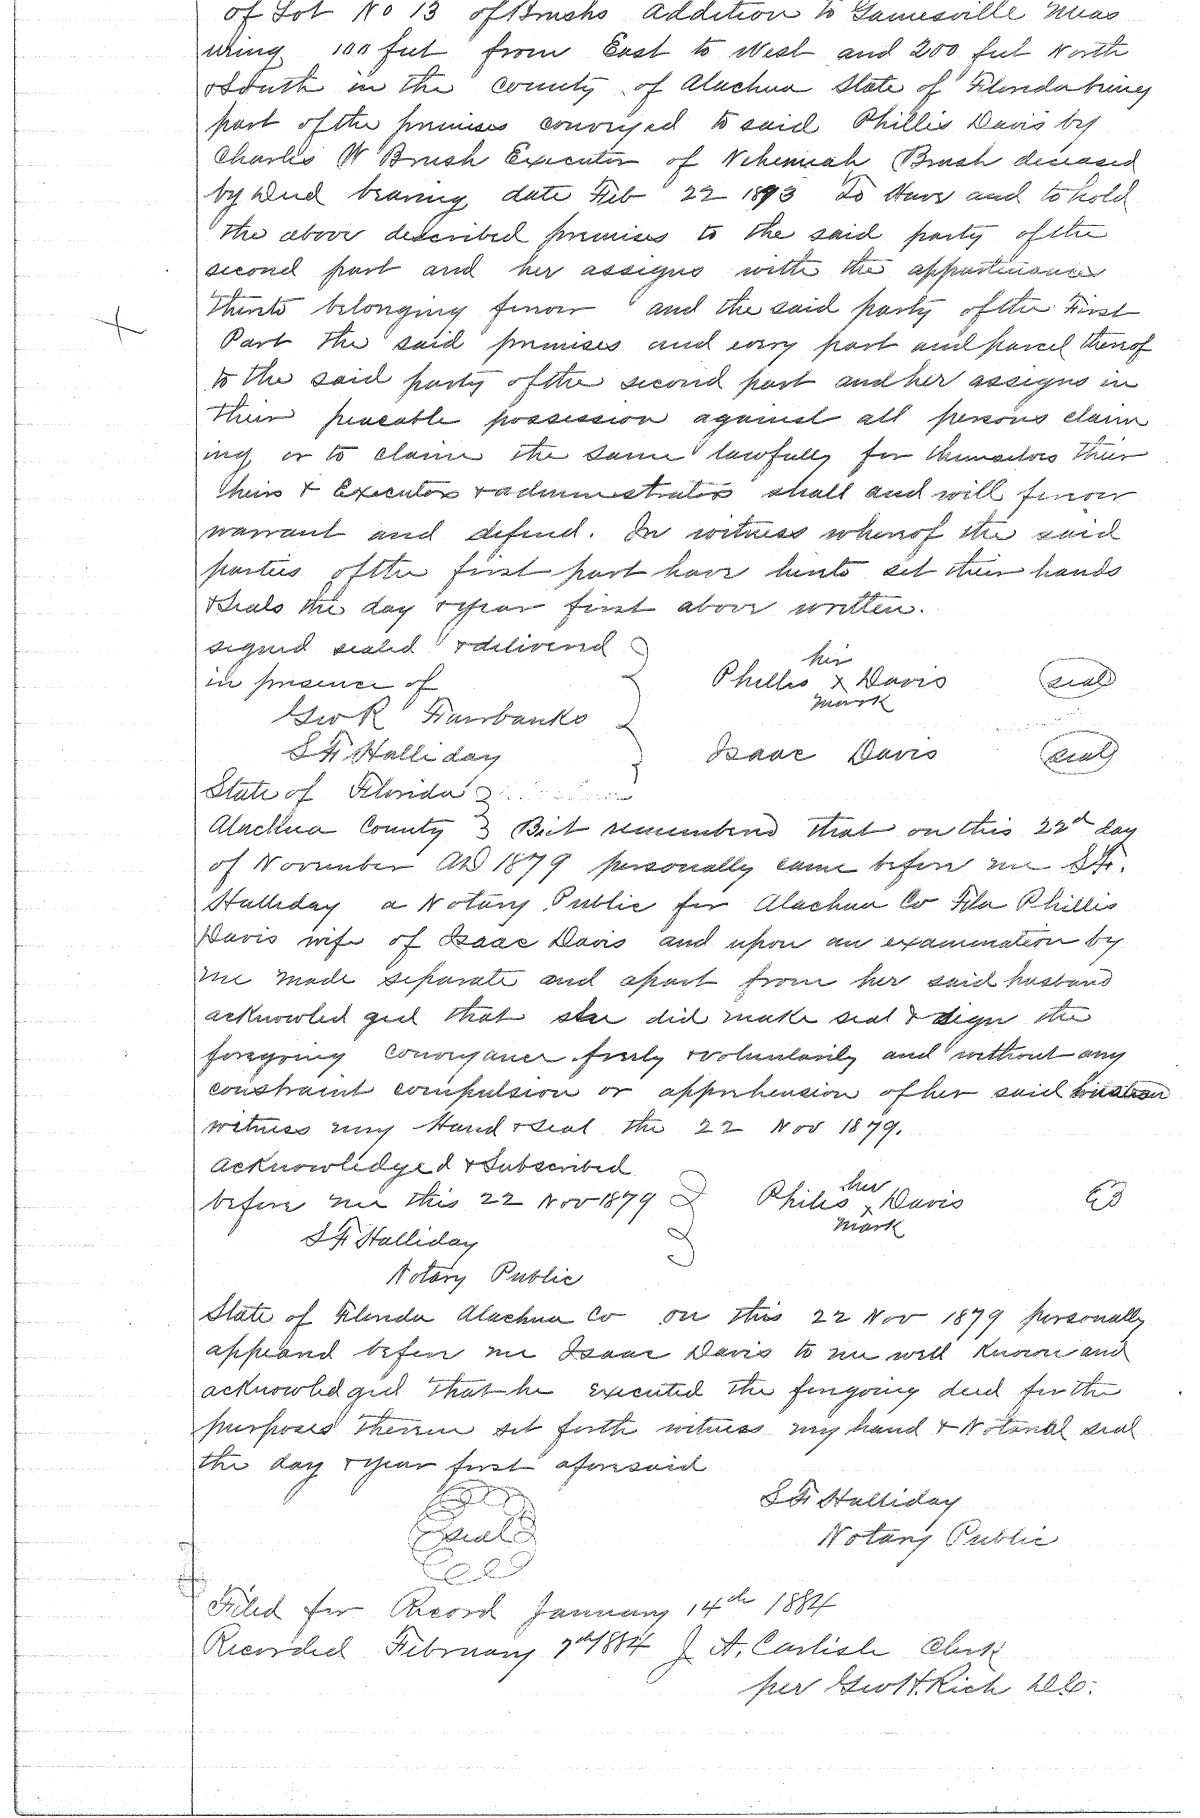 of Lot No 13 of Brushs Addition to Gainesville meas
uring 100 feet from East to West and 200 feet North
& South in the county of Alachua State of Florida being
part of the premises conveyed to said Phillis Davis by
Charles W Brush Executor of Nehemiah Brush deceased
by Deed bearing date Feb 22 1893 To Have and to hold
the above described premises to the said party of the
second part and her assigns with the appurtinances
thereto belonging forever and the said party of the First
Part the said premises and every part and parcel thereof
to the said party of the second part and her assigns in
their peaceable possession against all persons claim
ing or to claim the same lawfully for themselves their
heirs & Executors & administrators shall and will forever
warrant and defend. In witness whereof the said
parties of the first part have hereto set their hands
& seals the day & year first above written.
signed sealed & delivered
in presence of
Geo R Fairbanks
S F Halliday
her
Phillis x Davis seal
mark
Isaac Davis seal
State of Florida
Alachua County Be it remembered that on this 22d day
of November AD 1879 personally came before me S F.
Halliday a Notary Public for Alachua Co Fla Phillis
Davis wife of Isaac Davis and upon an examination by
me made separate and apart from her said husband
acknowledged that she did make seal & sign the
foregoing conveyance freely & voluntarily and without any
constraint compulsion or apprehension of her said husban
witness my Hand & seal the 22 Nov 1879.
Acknowledged & Subscribed
before me this 22 Nov 1879
S F Halliday
Notary Public
her
Philis x Davis
mark
State of Florida Alachua Co on this 22 Nov 1879 personally
appeared before me Isaac Davis to me well known and
acknowledged that he executed the foregoing deed for the
purposes therein set forth witness my hand & Notarial seal
the day & year first aforesaid
seal
S F Halliday
Notary Public
Filed for Record January 14th 1884
Recorded February 7th 1884 J A. Carlisle Clerk
per Geo H. Rich D.C.